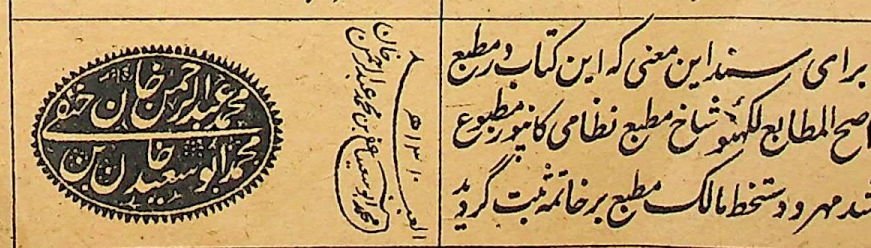 برای سند این معنی که این کتاب در مطبع
اصح المطابع لکهنو شاخ مطبع نظامی کانپور مطبوع
شد مهر و دستخط مالک مطبع بر خاتمه ثبت گردید
العبد
محمد ابو سعید بن محمد عبد الرحمن خان
۱۳۱۰ ھ
محمد عبد الرحمن خان حنفی
محمد ابو سعید خان بن